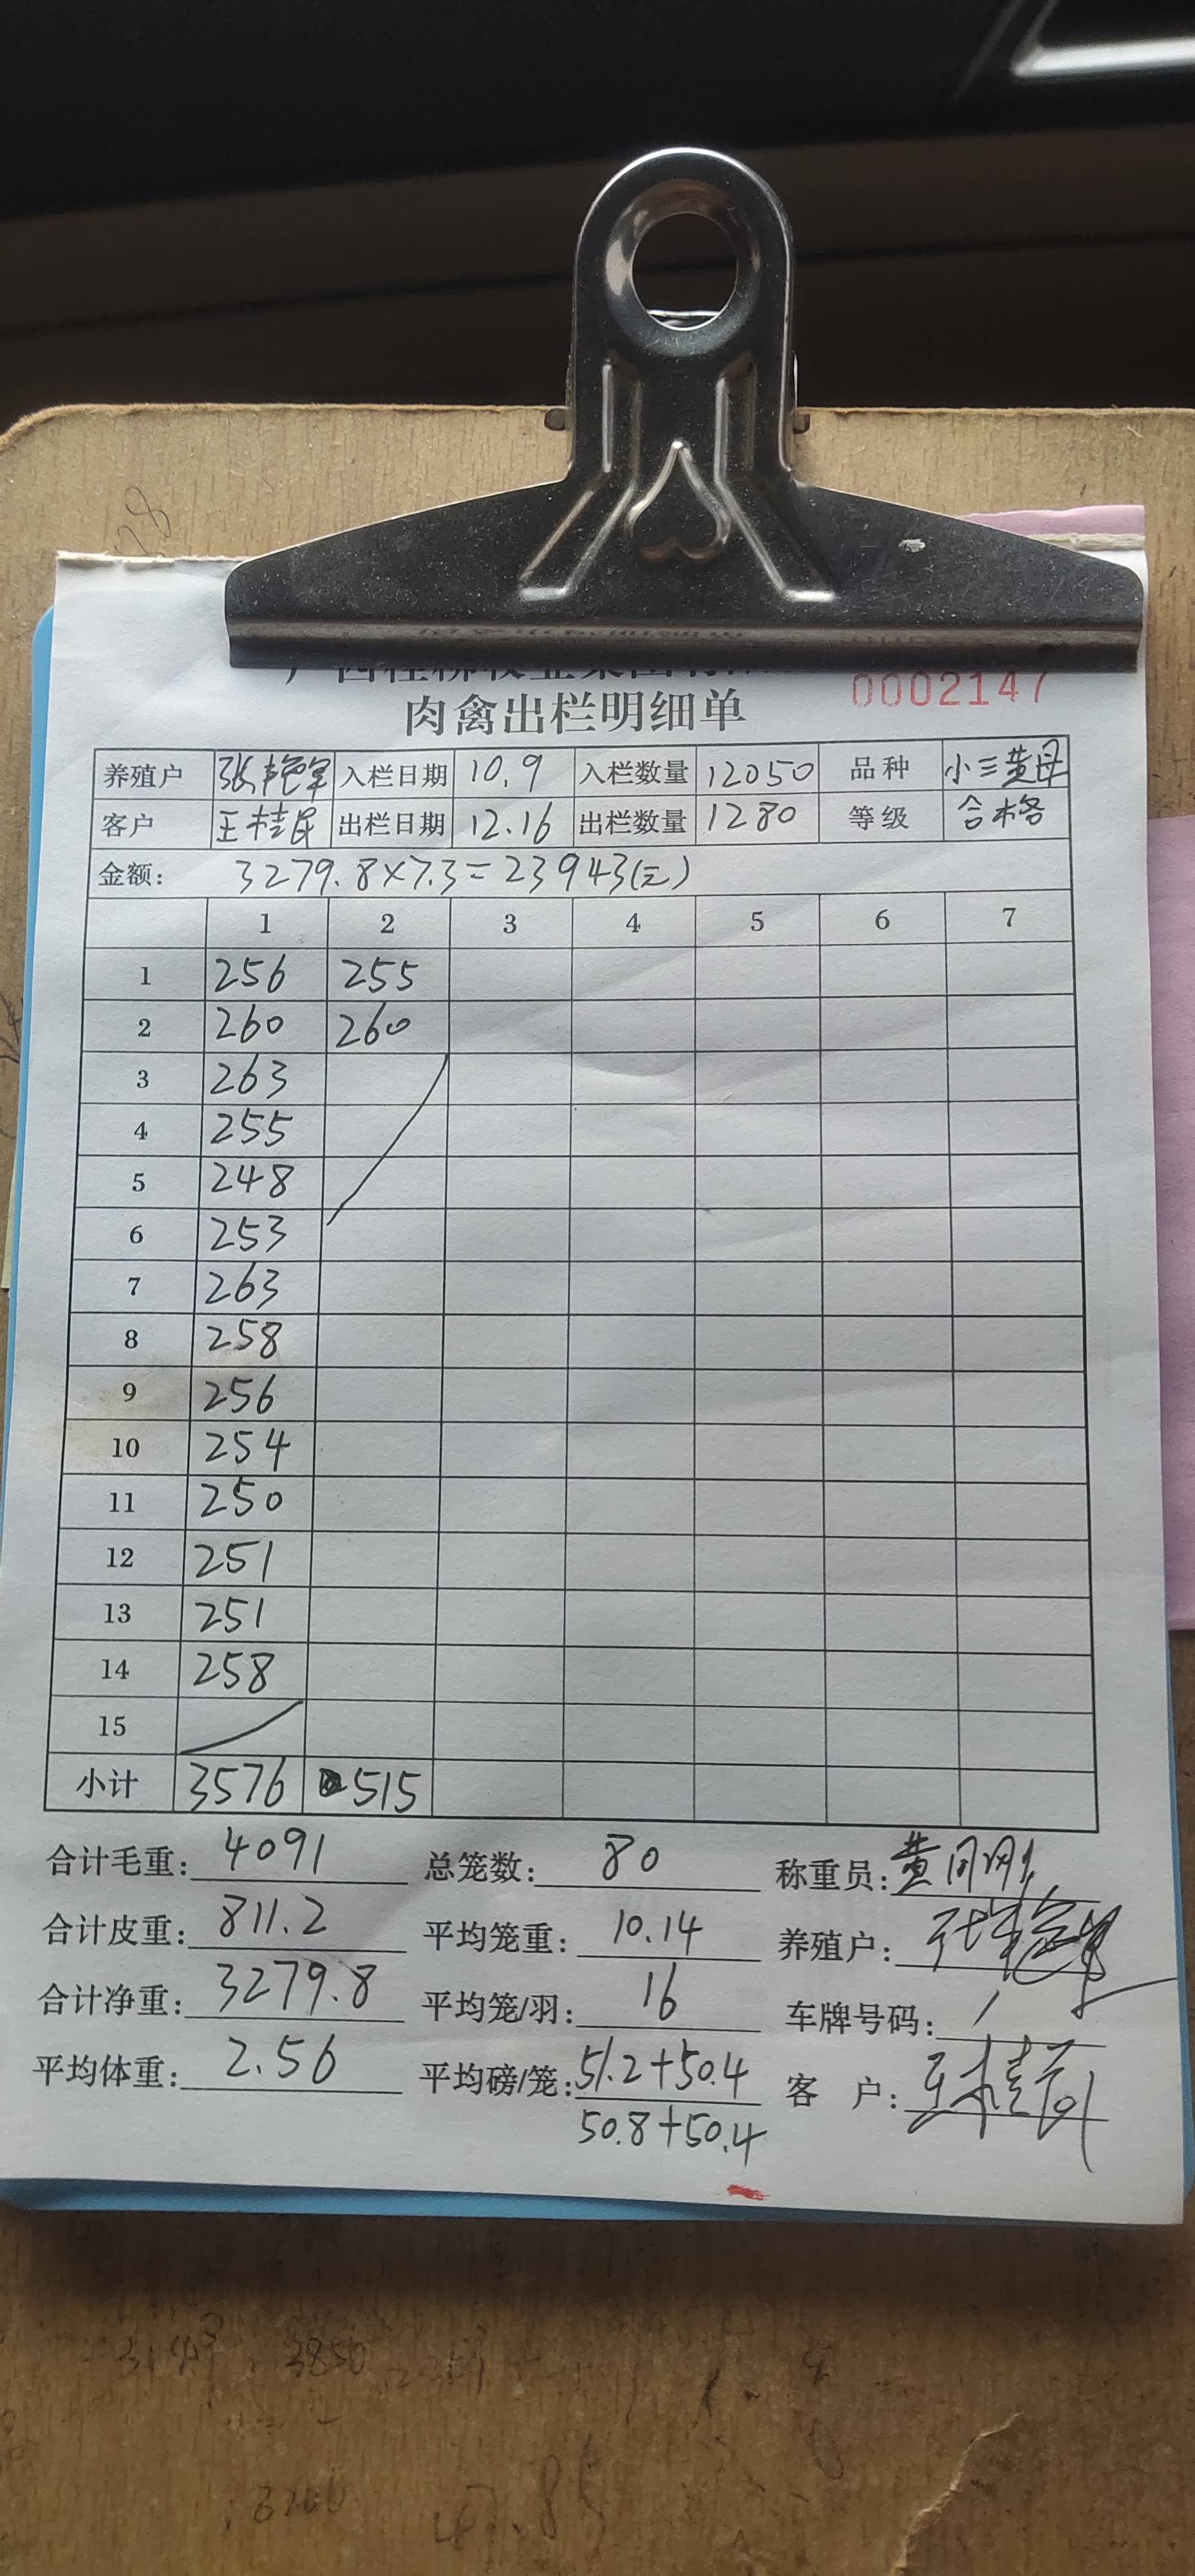 0002147
肉禽出栏明细单
养殖户 张艳军 入栏日期 10.9 入栏数量 12050 品种 小三黄母
客户 王桂民 出栏日期 12.16 出栏数量 1280 等级 合格
金额: 3279.8×7.3=23943(元)
1 2 3 4 5 6 7
1 256 255
2 260 260
3 263
4 255
5 248
6 253
7 263
8 258
9 256
10 254
11 250
12 251
13 251
14 258
15
小计 3576 515
合计毛重: 4091 总笼数: 80 称重员: 黄
合计皮重: 811.2 平均笼重: 10.14 养殖户:
合计净重: 3279.8 平均笼/羽: 16 车牌号码: /
平均体重: 2.56 平均磅/笼: 51.2+50.4 客 户:
50.8+50.4